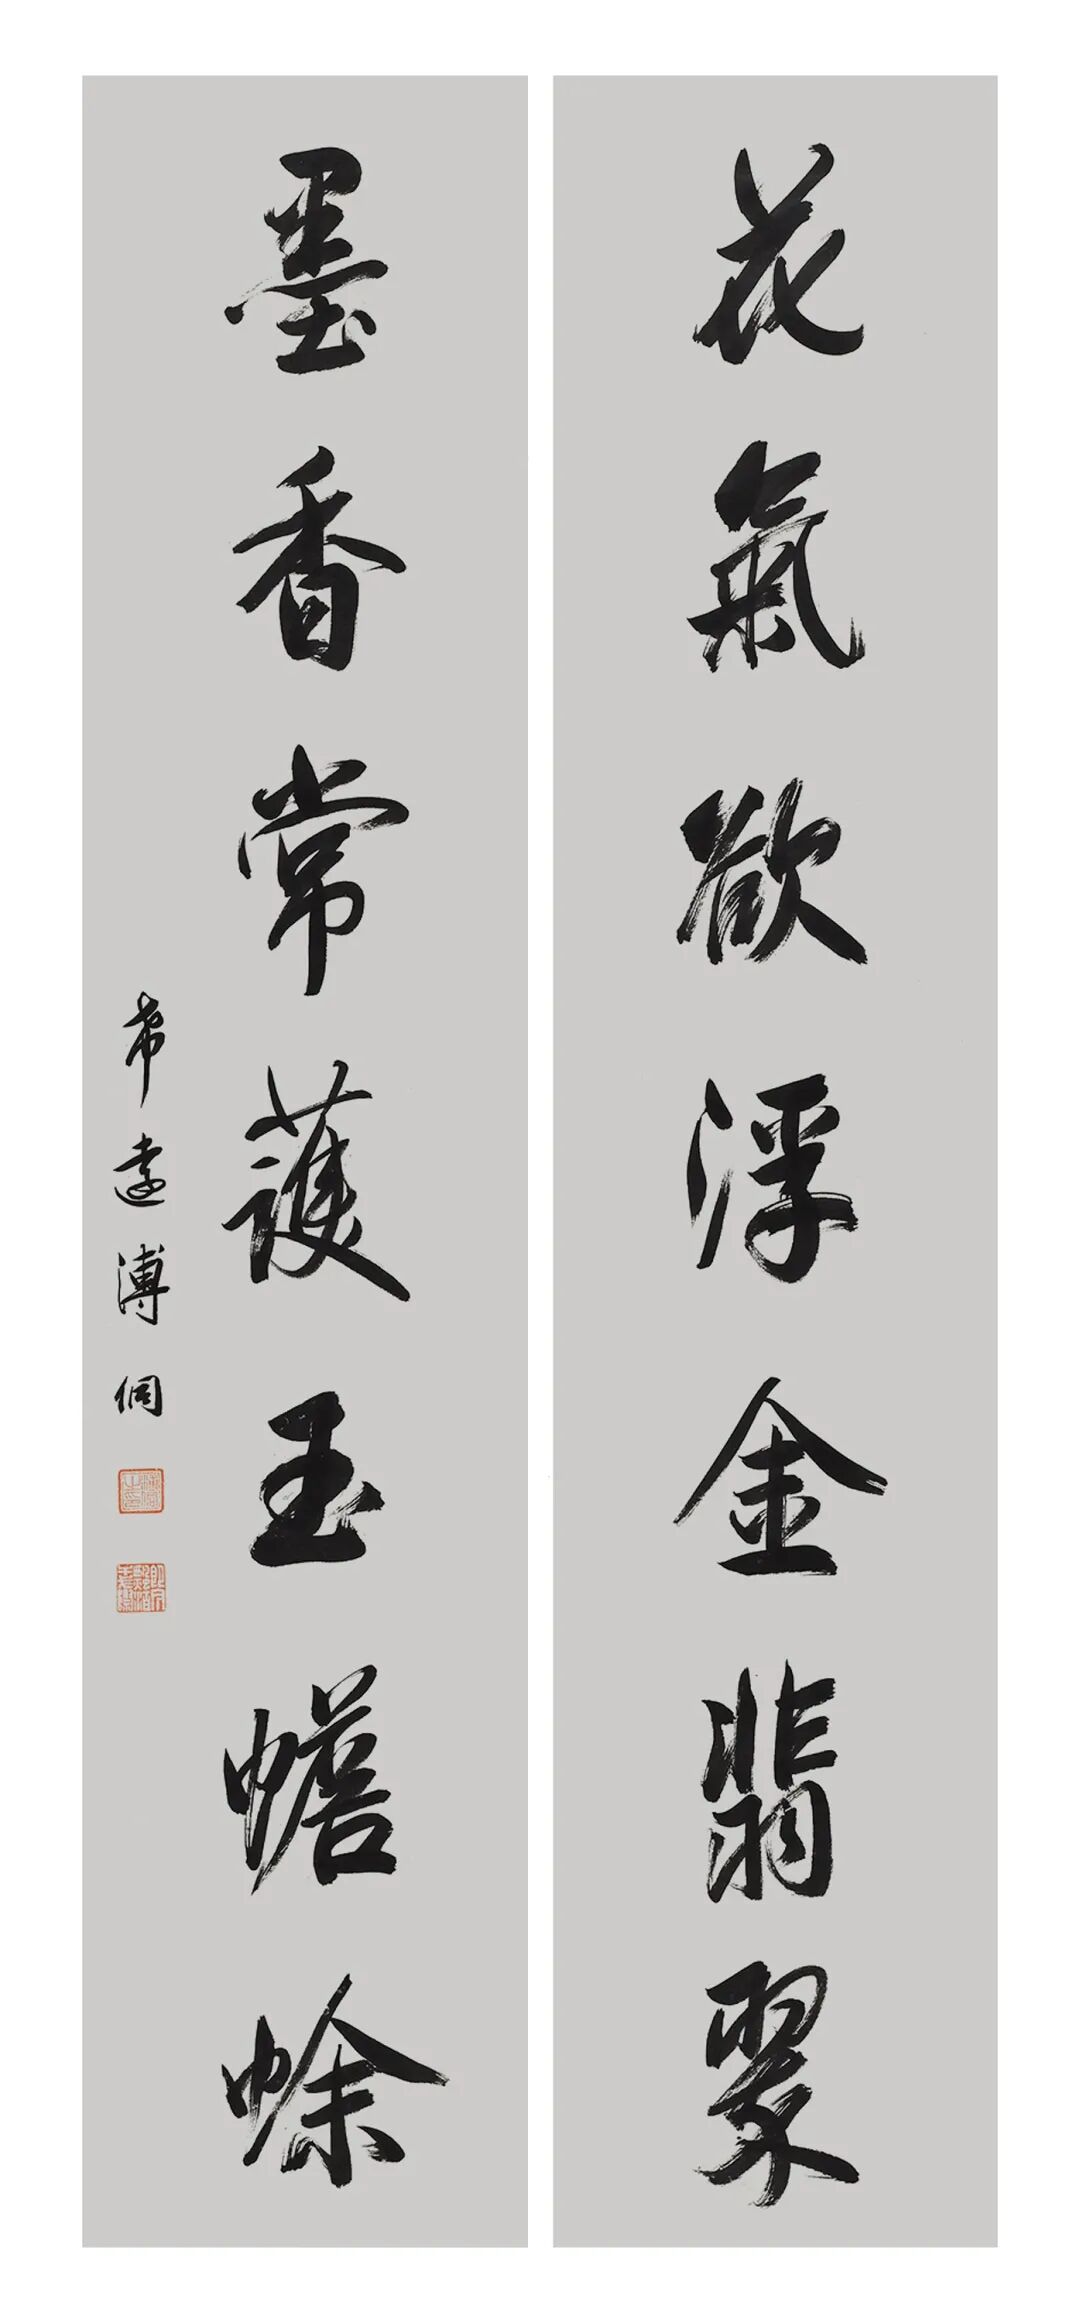 花氣欲浮金翡翠
墨香常護玉蟾蜍
希遠溥侗